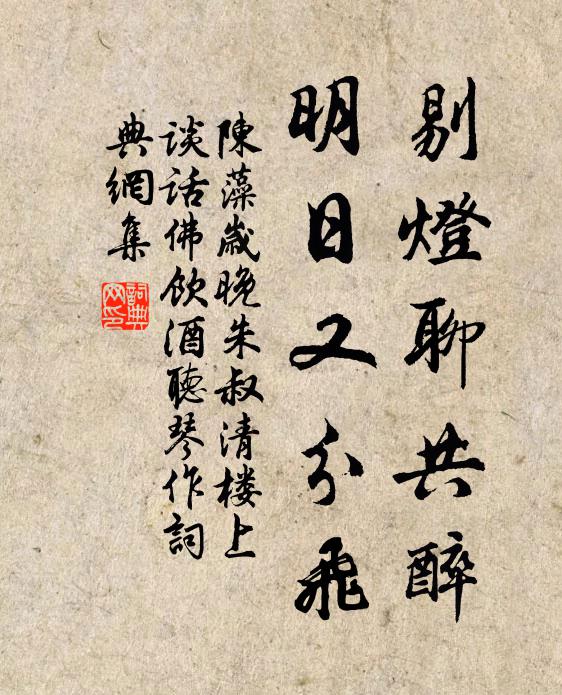 剔燈聊共醉
明日又分飛
陳藻歲晚朱叔清楼上
談話佛飲酒聽琴作詞
典網集
詞典
网印